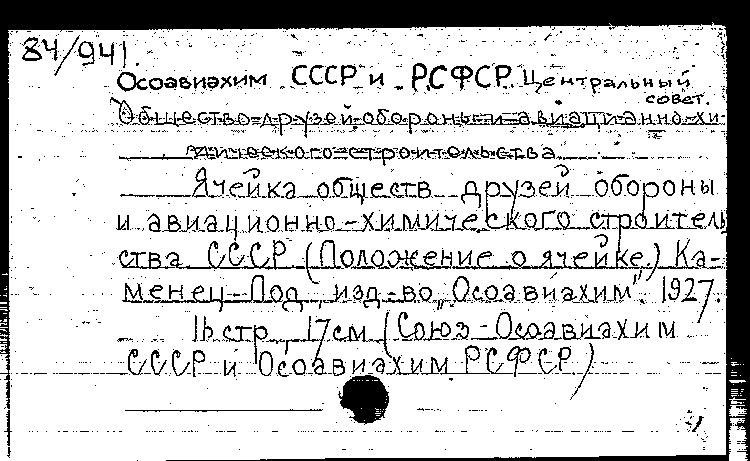 84/941.
Осоавиахим СССР и РСФСР. Центральный
совет.
Общество друзей обороны и авиационно-хи-
мического строительства
Ячейка обществ друзей обороны
и авиационно-химического строитель
ства СССР. (Положение о ячейке.) Ка-
менец-Под., изд-во „Осоавиахим", 1927.
16 стр., 17 см (Союз Осоавиахим
СССР и Осоавиахим РСФСР)